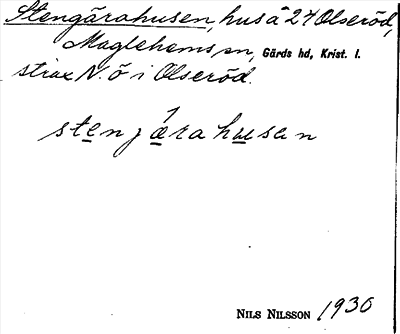 Stengärahusen, hus å 24 Olseröd,
Maglehems sn, Gärds hd, Krist. l.
strax N. ö i Olseröd.
stenjärahusan
NILS NILSSON 1930